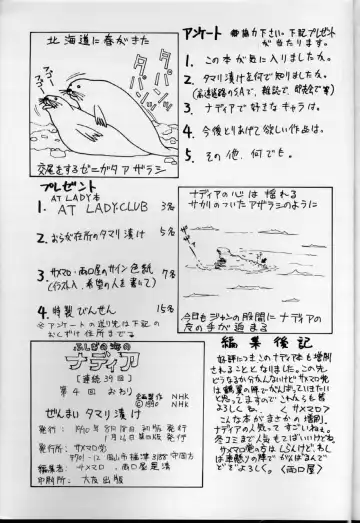 北海道に春がきた
アゴー
アゴー
タパンッ
タパンッ
交尾をするゼニガタアザラシ
アンケート ご協力下さい。下記プレゼント
が当たります。
1. この本が気に入りましたか。
2. タマリ漬けを何で知りましたか。
(高速道路のSAで、雑誌で、即売会等)
3. ナディアで好きなキャラは。
4. 今後とりあげて欲しい作品は。
5. その他、何でも。
プレゼント
AT LADY本
1. AT LADY-CLUB 3名
2. おらが在所のタマリ漬け 5名
3. サメマロ・雨口屋のサイン色紙 7名
(イラスト入、希望の人を書いて)
4. 特製びんせん 15名
※アンケートの送り先は下記の
おしげけ住所まで
ナディアの心は揺れる
サカリのついたアザラシのように
今日もジャンの股間にナディアの
魔の手が迫る
ふしぎの海の
ナディア
[連続39回]
第4回 おわり
企画製作 NHK
©1990 NHK
ぜんまいタマリ漬け
発行: 1990年8月18日初版発行
発行所: サメマロ党
編集者: サメマロ、雨口屋是清
印刷所: 大友出版
編集後記
好評につきこのナディア本も増刷
されることとなりました。この先
どうなるか分んないけどサメマロ党
は鶴翼の陣でがんばっていきたい
と思ってますのでこれからも皆
よろしくね。 <サメマロ>
こんな本がまさかの増刷。
ナディアの人気ってすごいねぇ。
冬コミまで人気もてばいいけどね。
サメマロ党の方はしらんけど、わし
は車懸りの陣でがんばるんで
どうぞよろしく。<雨口屋>